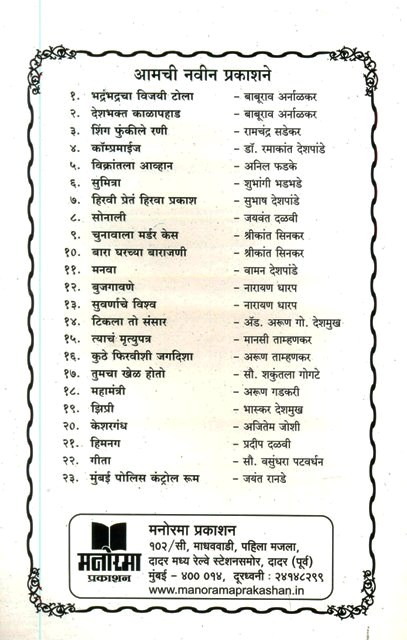 आमची नवीन प्रकाशने
१. भद्रंभद्रचा विजयी टोला - बाबूराव अर्नाळकर
२. देशभक्त काळापहाड - बाबूराव अर्नाळकर
३. शिंग फुंकीले रणी - रामचंद्र सडेकर
४. कॉम्प्रमाईज - डॉ. रमाकांत देशपांडे
५. विक्रांतला आव्हान - अनिल फडके
६. सुमित्रा - शुभांगी भडभडे
७. हिरवी प्रेतं हिरवा प्रकाश - सुभाष देशपांडे
८. सोनाली - जयवंत दळवी
९. चुनावाला मर्डर केस - श्रीकांत सिनकर
१०. बारा घरच्या बाराजणी - श्रीकांत सिनकर
११. मनवा - वामन देशपांडे
१२. बुजगावणे - नारायण धारप
१३. सुवर्णाचे विश्व - नारायण धारप
१४. टिकला तो संसार - ॲड. अरूण गो. देशमुख
१५. त्याचं मृत्युपत्र - मानसी ताम्हणकर
१६. कुठे फिरवीशी जगदिशा - अरूण ताम्हणकर
१७. तुमचा खेळ होतो - सौ. शकुंतला गोगटे
१८. महामंत्री - अरूण गडकरी
१९. झिप्री - भास्कर देशमुख
२०. केशरगंध - अजितेम जोशी
२१. हिमनग - प्रदीप दळवी
२२. गीता - सौ. वसुंधरा पटवर्धन
२३. मुंबई पोलिस कंट्रोल रूम - जयंत रानडे
मनोरमा
प्रकाशन
मनोरमा प्रकाशन
१०२/सी, माधववाडी, पहिला मजला,
दादर मध्य रेल्वे स्टेशनसमोर, दादर (पूर्व)
मुंबई - ४०० ०१४, दूरध्वनी : २४१४८२९९
www.manoramaprakashan.in